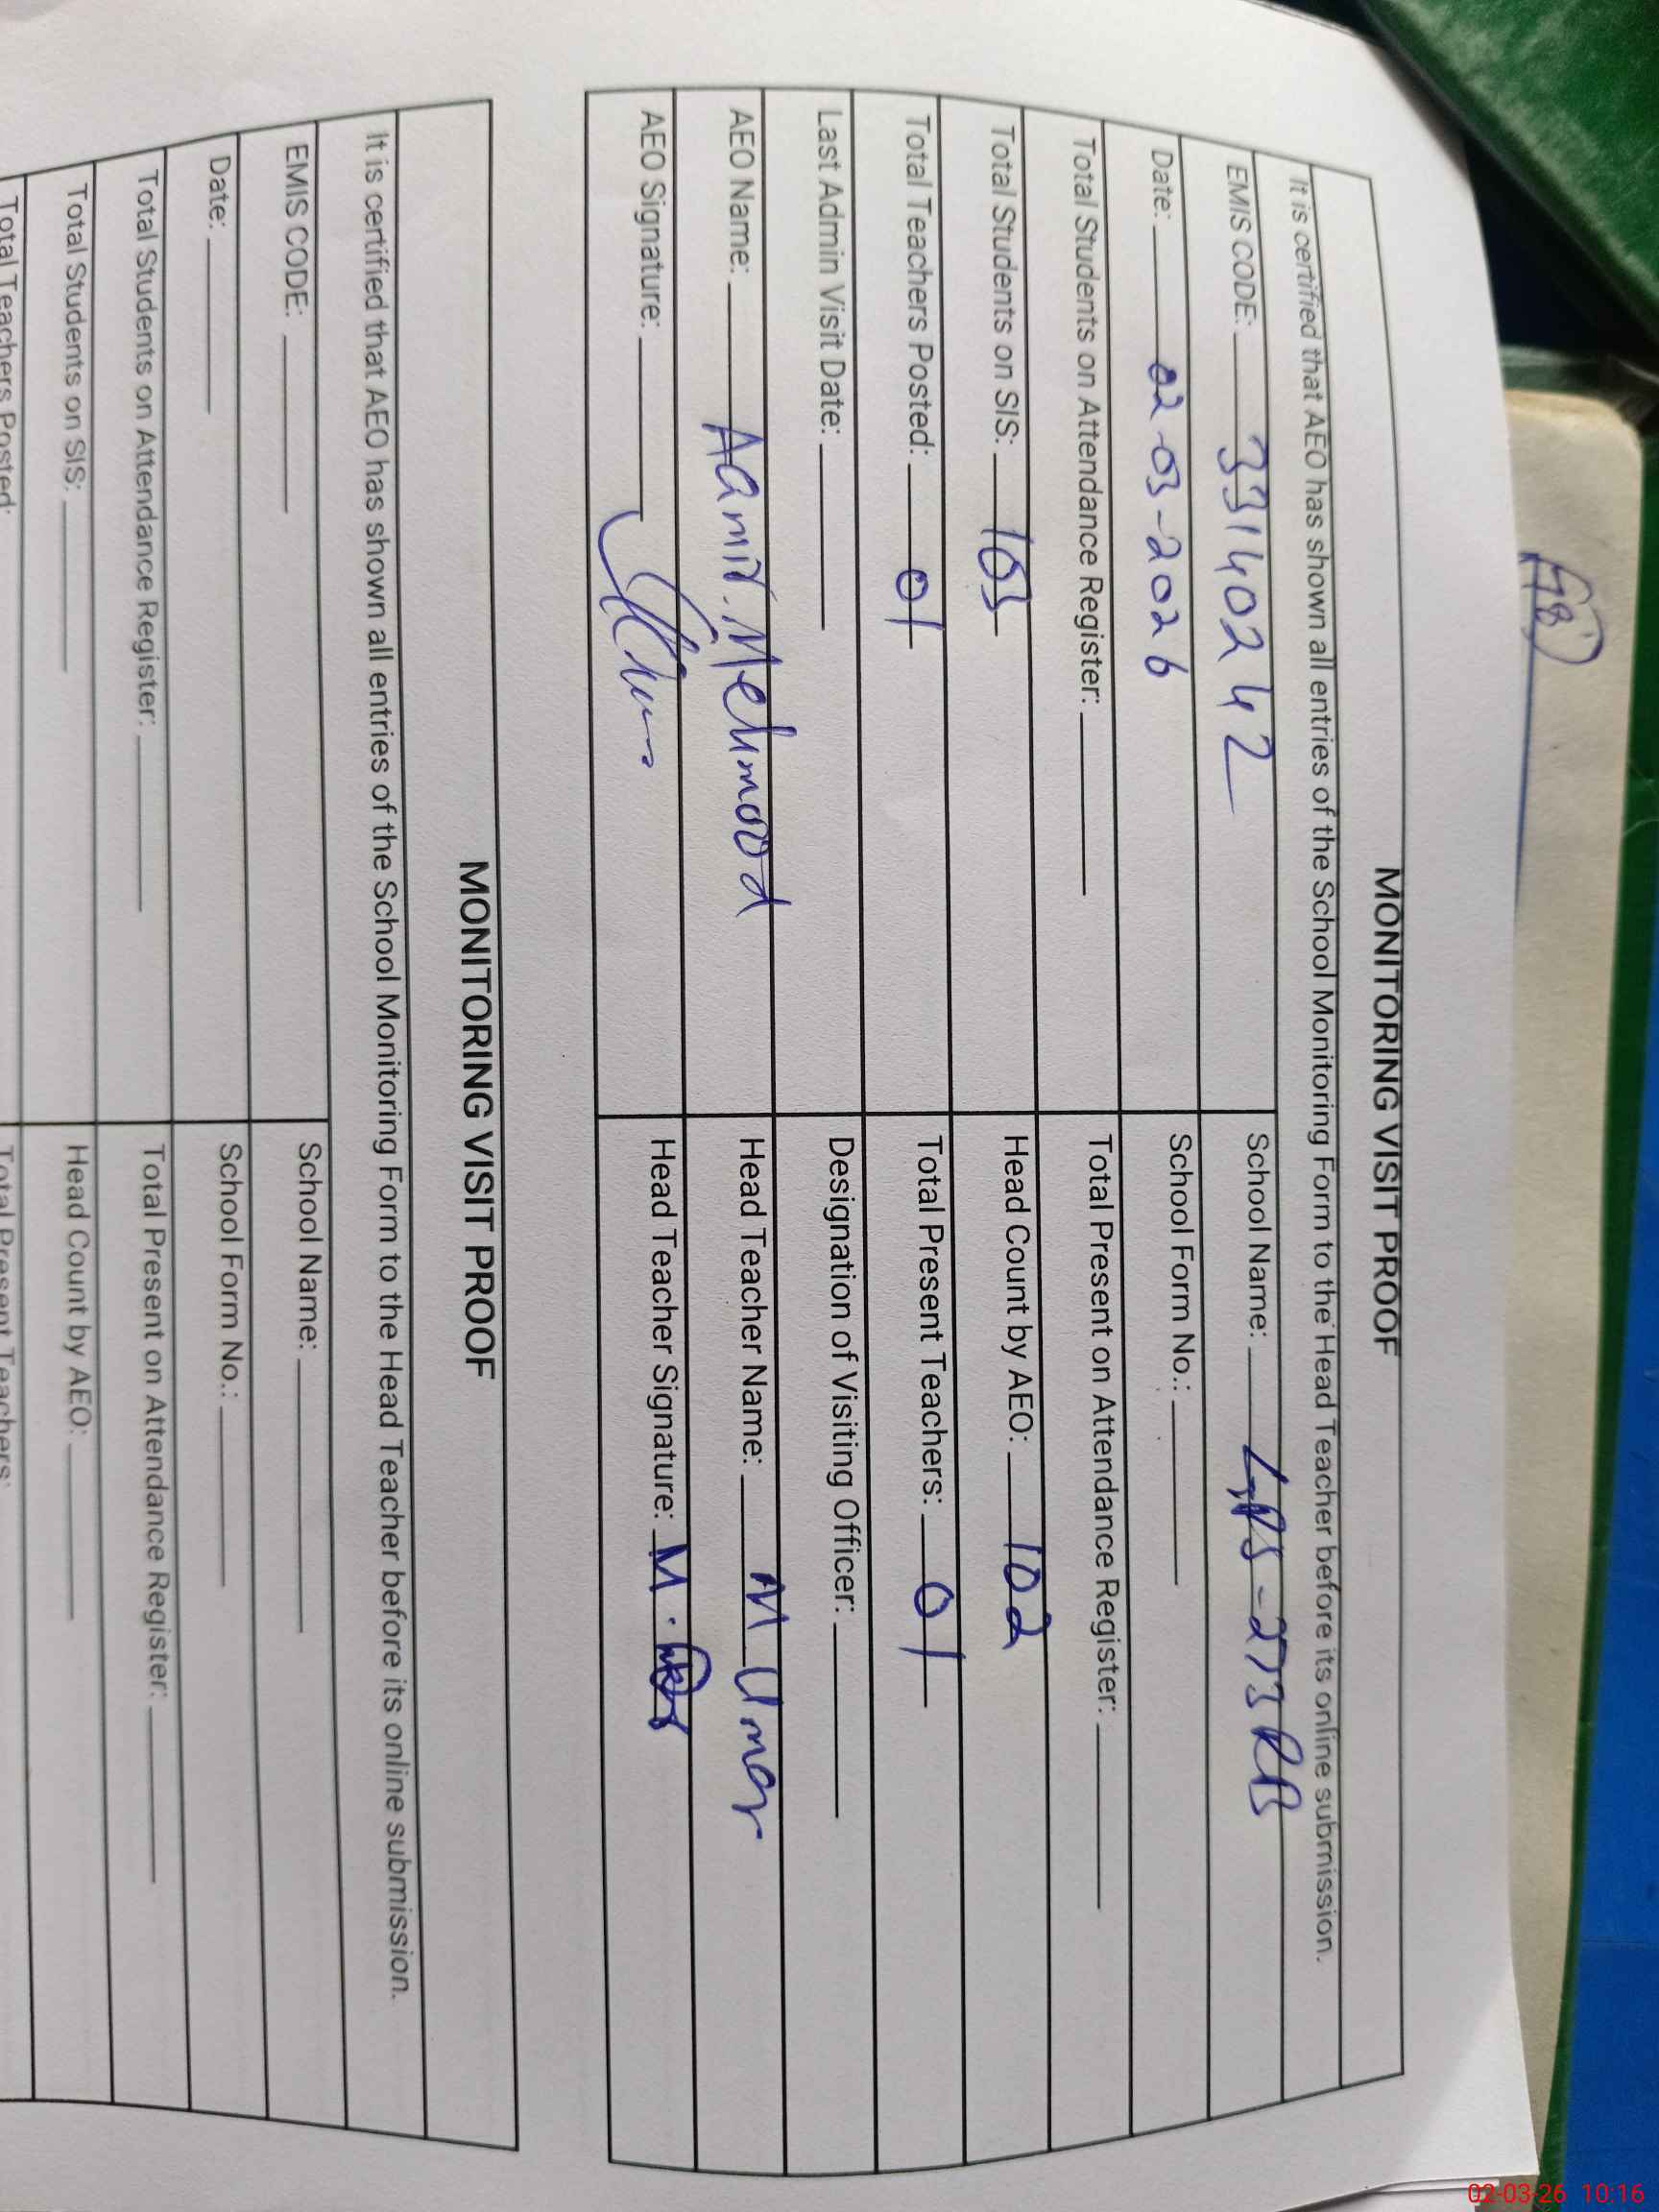 MONITORING VISIT PROOF
It is certified that AEO has shown all entries of the School Monitoring Form to the Head Teacher before its online submission.
EMIS CODE: 33140242 School Name: GPS-273 RB
Date: 02-03-2026 School Form No.:
Total Students on Attendance Register: Total Present on Attendance Register:
Total Students on SIS: 103 Head Count by AEO: 102
Total Teachers Posted: 01 Total Present Teachers: 01
Last Admin Visit Date: Designation of Visiting Officer:
AEO Name: Aamir Mehmood Head Teacher Name: M Umar
AEO Signature: Head Teacher Signature: M.
MONITORING VISIT PROOF
It is certified that AEO has shown all entries of the School Monitoring Form to the Head Teacher before its online submission.
EMIS CODE: School Name:
Date: School Form No.:
Total Students on Attendance Register: Total Present on Attendance Register:
Total Students on SIS: Head Count by AEO:
Total Teachers Posted: Total Present Teachers:
02-03-26 10:16